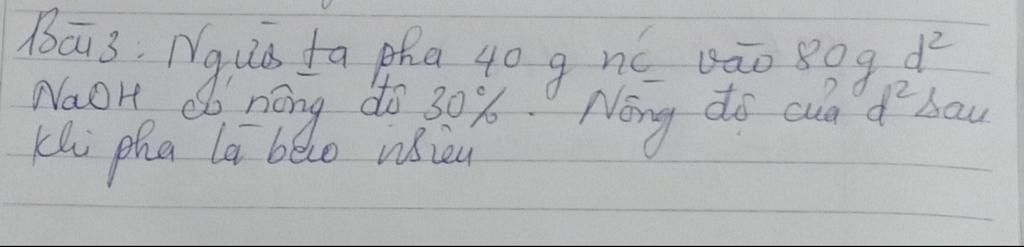 Bài 3: Người ta pha 40 g nc vào 80g d²
NaOH có nồng độ 30%. Nồng độ của d² sau
khi pha là bao nhiêu